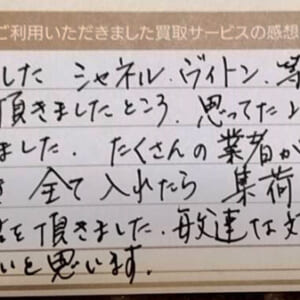 ご利用いただきました買取サービスの感想
した シャネル.ヴィトン.等
頂きましたところ.思ってたよ
ました. たくさんの業者が
全て入れたら 集荷
を頂きました.敏速な
いと思います.